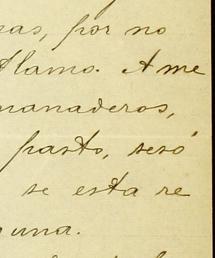 nas, por no
Alamo. A me
manaderos,
pasto, sesó
se esta re
una.